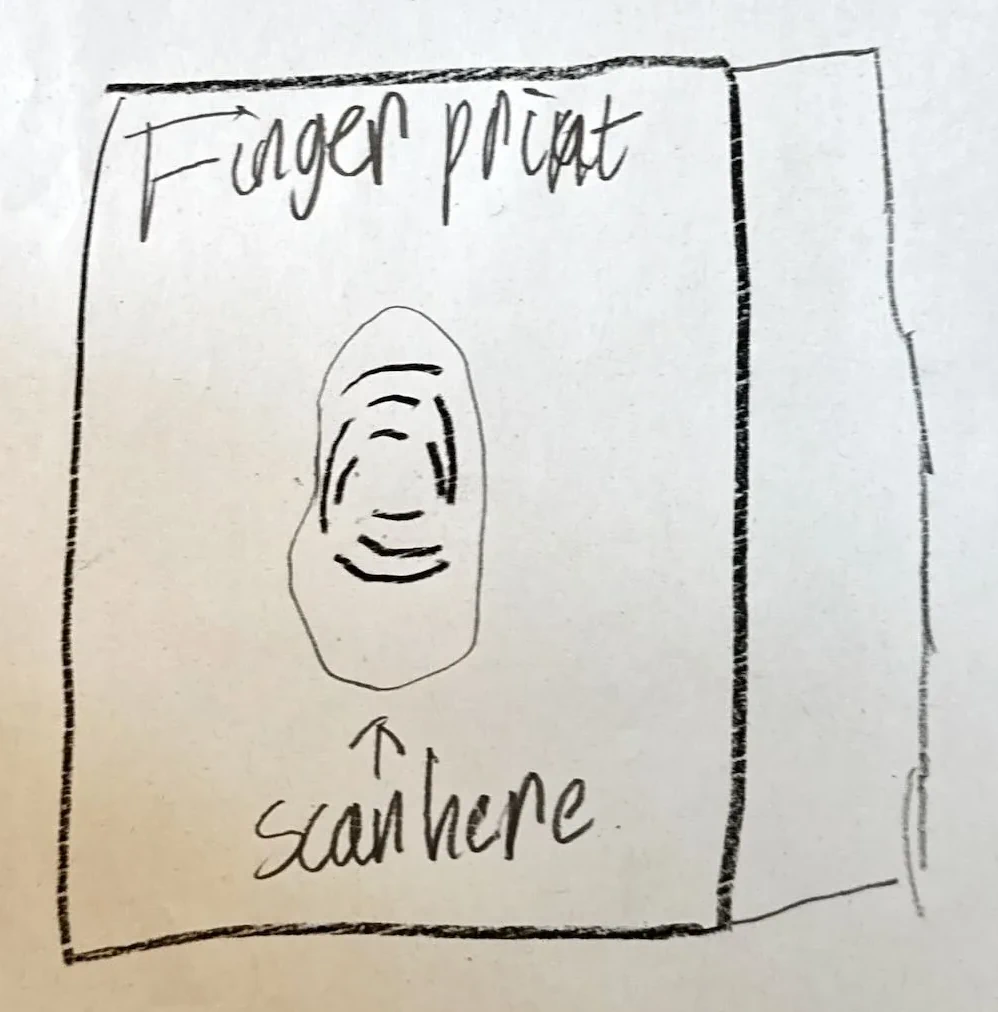 Finger print
scan here